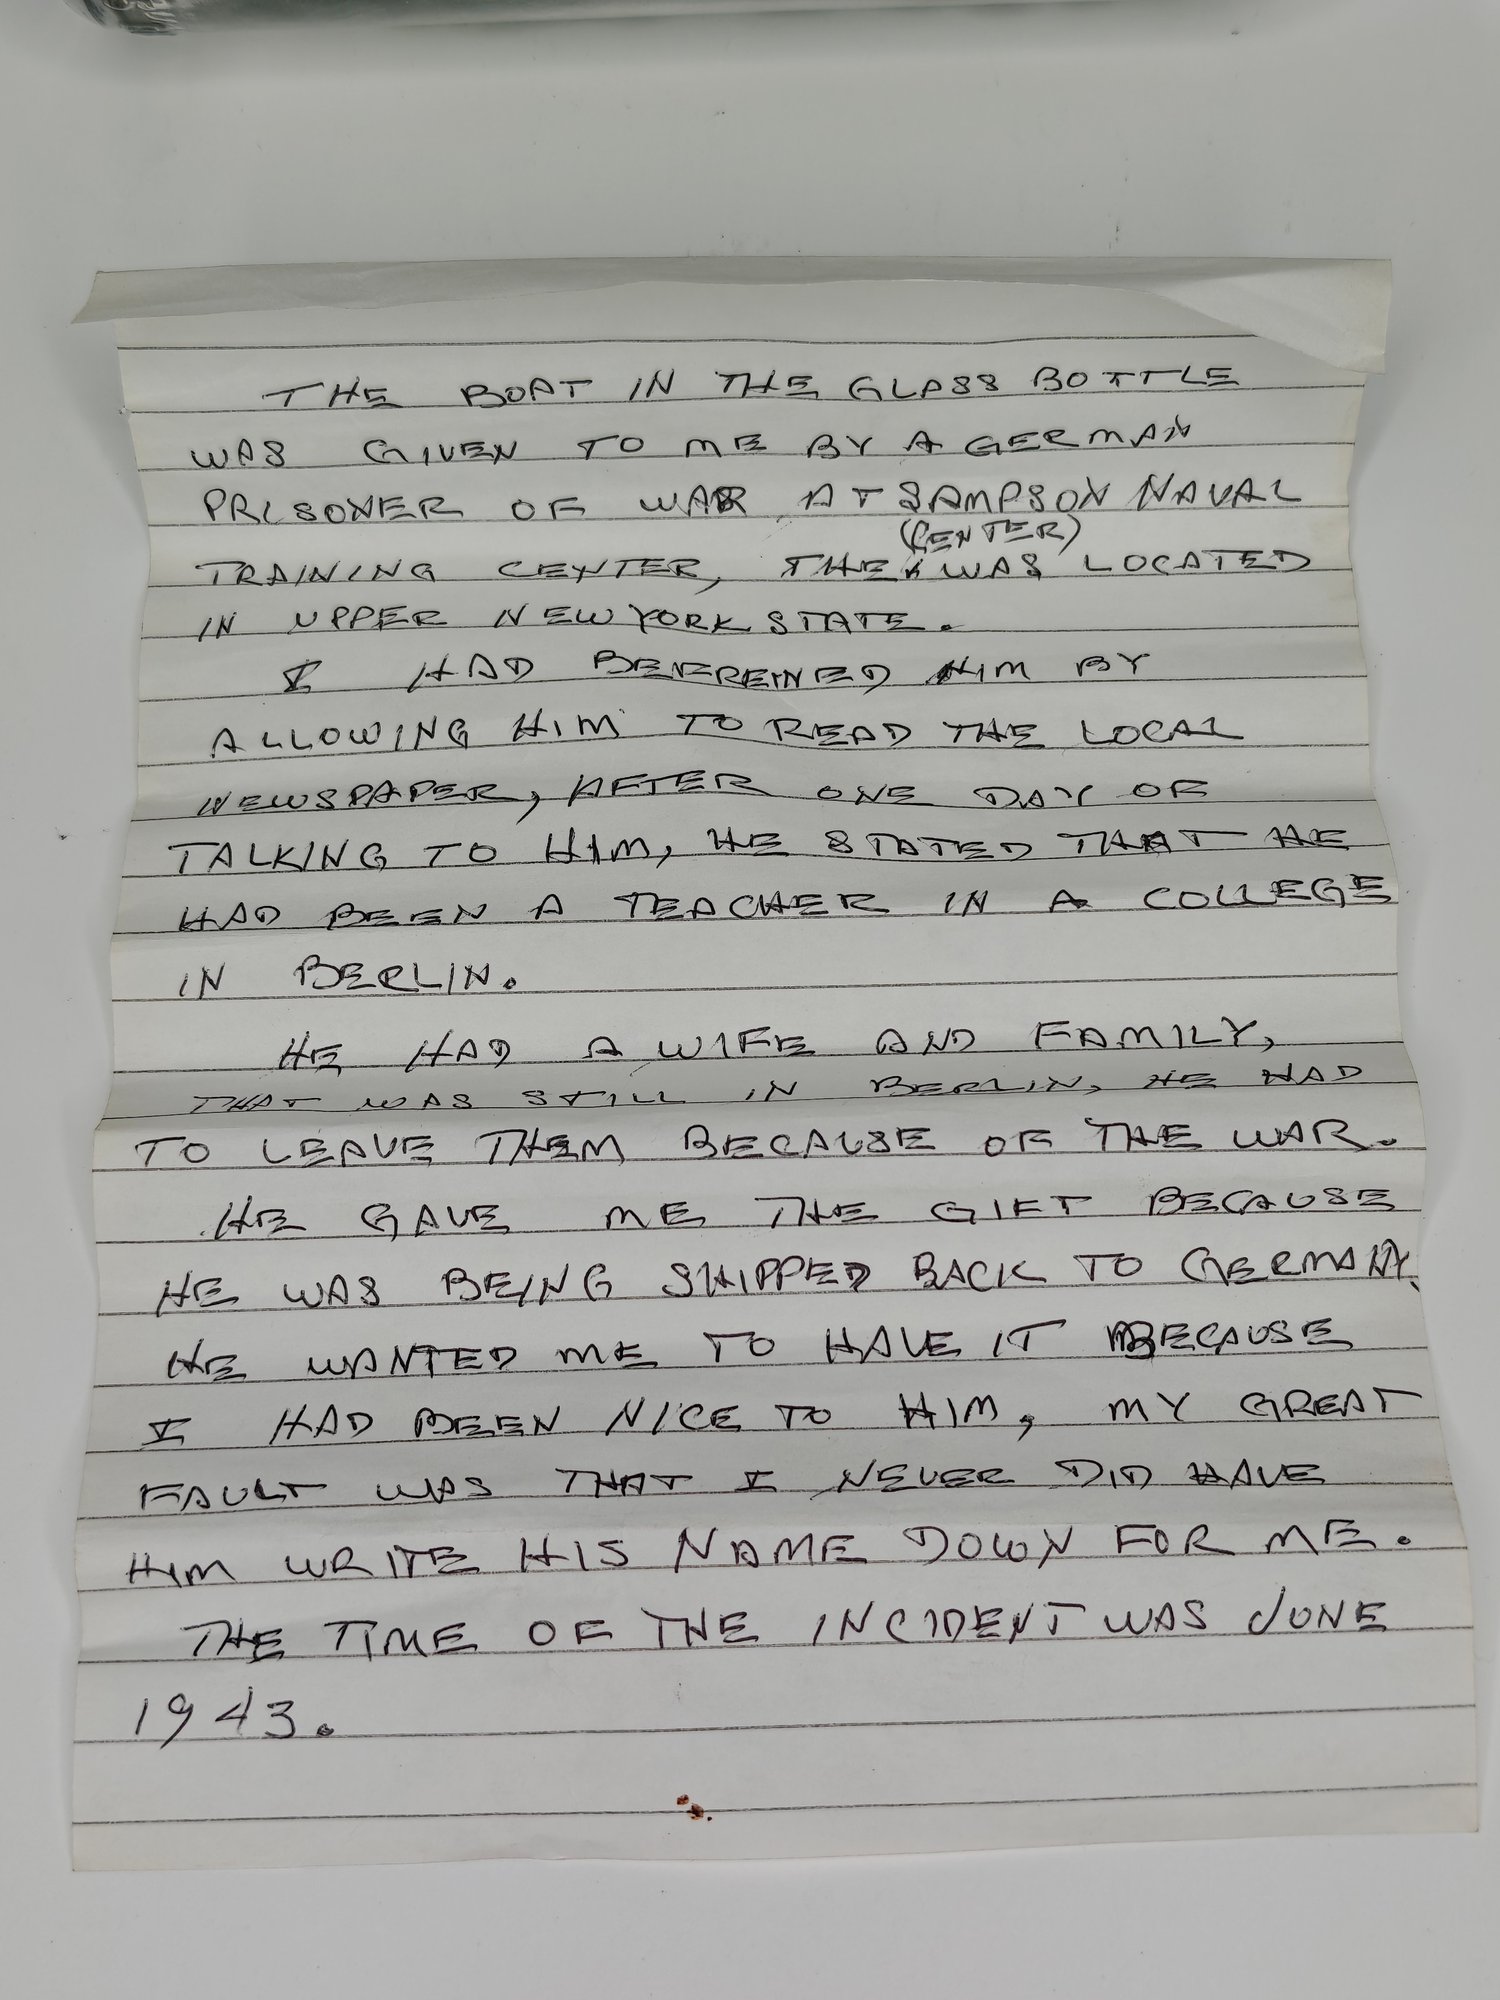 THE BOAT IN THE GLASS BOTTLE
WAS GIVEN TO ME BY A GERMAN
PRISONER OF WAR AT SAMPSON NAVAL
(CENTER)
TRAINING CENTER, THE WAS LOCATED
IN UPPER NEW YORK STATE.
I HAD BEFREINED HIM BY
ALLOWING HIM TO READ THE LOCAL
NEWSPAPER, AFTER ONE DAY OF
TALKING TO HIM, HE STATED THAT HE
HAD BEEN A TEACHER IN A COLLEGE
IN BERLIN.
HE HAD A WIFE AND FAMILY,
THAT WAS STILL IN BERLIN, HE HAD
TO LEAVE THEM BECAUSE OF THE WAR.
HE GAVE ME THE GIFT BECAUSE
HE WAS BEING SHIPPED BACK TO GERMANY.
HE WANTED ME TO HAVE IT BECAUSE
I HAD BEEN NICE TO HIM, MY GREAT
FAULT WAS THAT I NEVER DID HAVE
HIM WRITE HIS NAME DOWN FOR ME.
THE TIME OF THE INCIDENT WAS JUNE
1943.